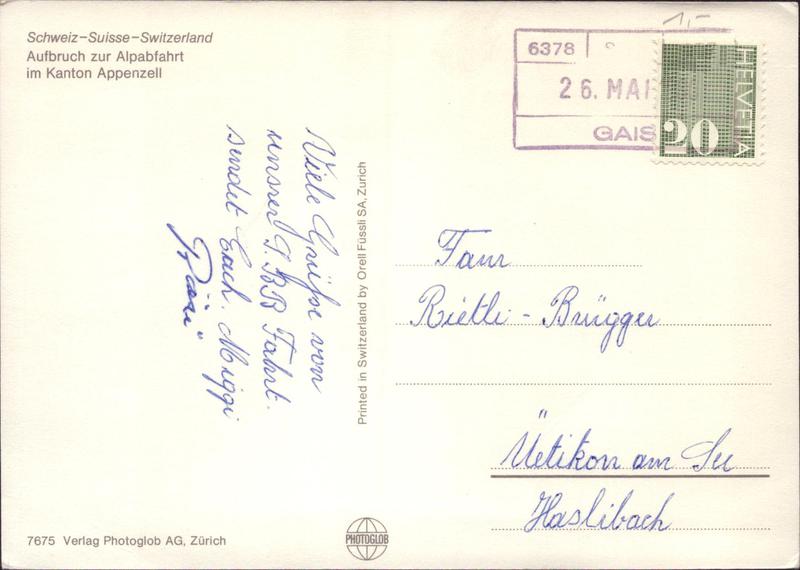 Schweiz-Suisse-Switzerland
Aufbruch zur Alpabfahrt
im Kanton Appenzell
1,-
6378
26. MAI
GAIS
HELVETIA
20
Viele Grüsse von
unsrer S.B.B Fahrt.
sendet Euch. Miggi
Printed in Switzerland by Orell Füssli SA, Zurich
Fam
Rietli - Brügger
Üetikon am See
Haslibach
7675 Verlag Photoglob AG, Zürich
PHOTOGLOB